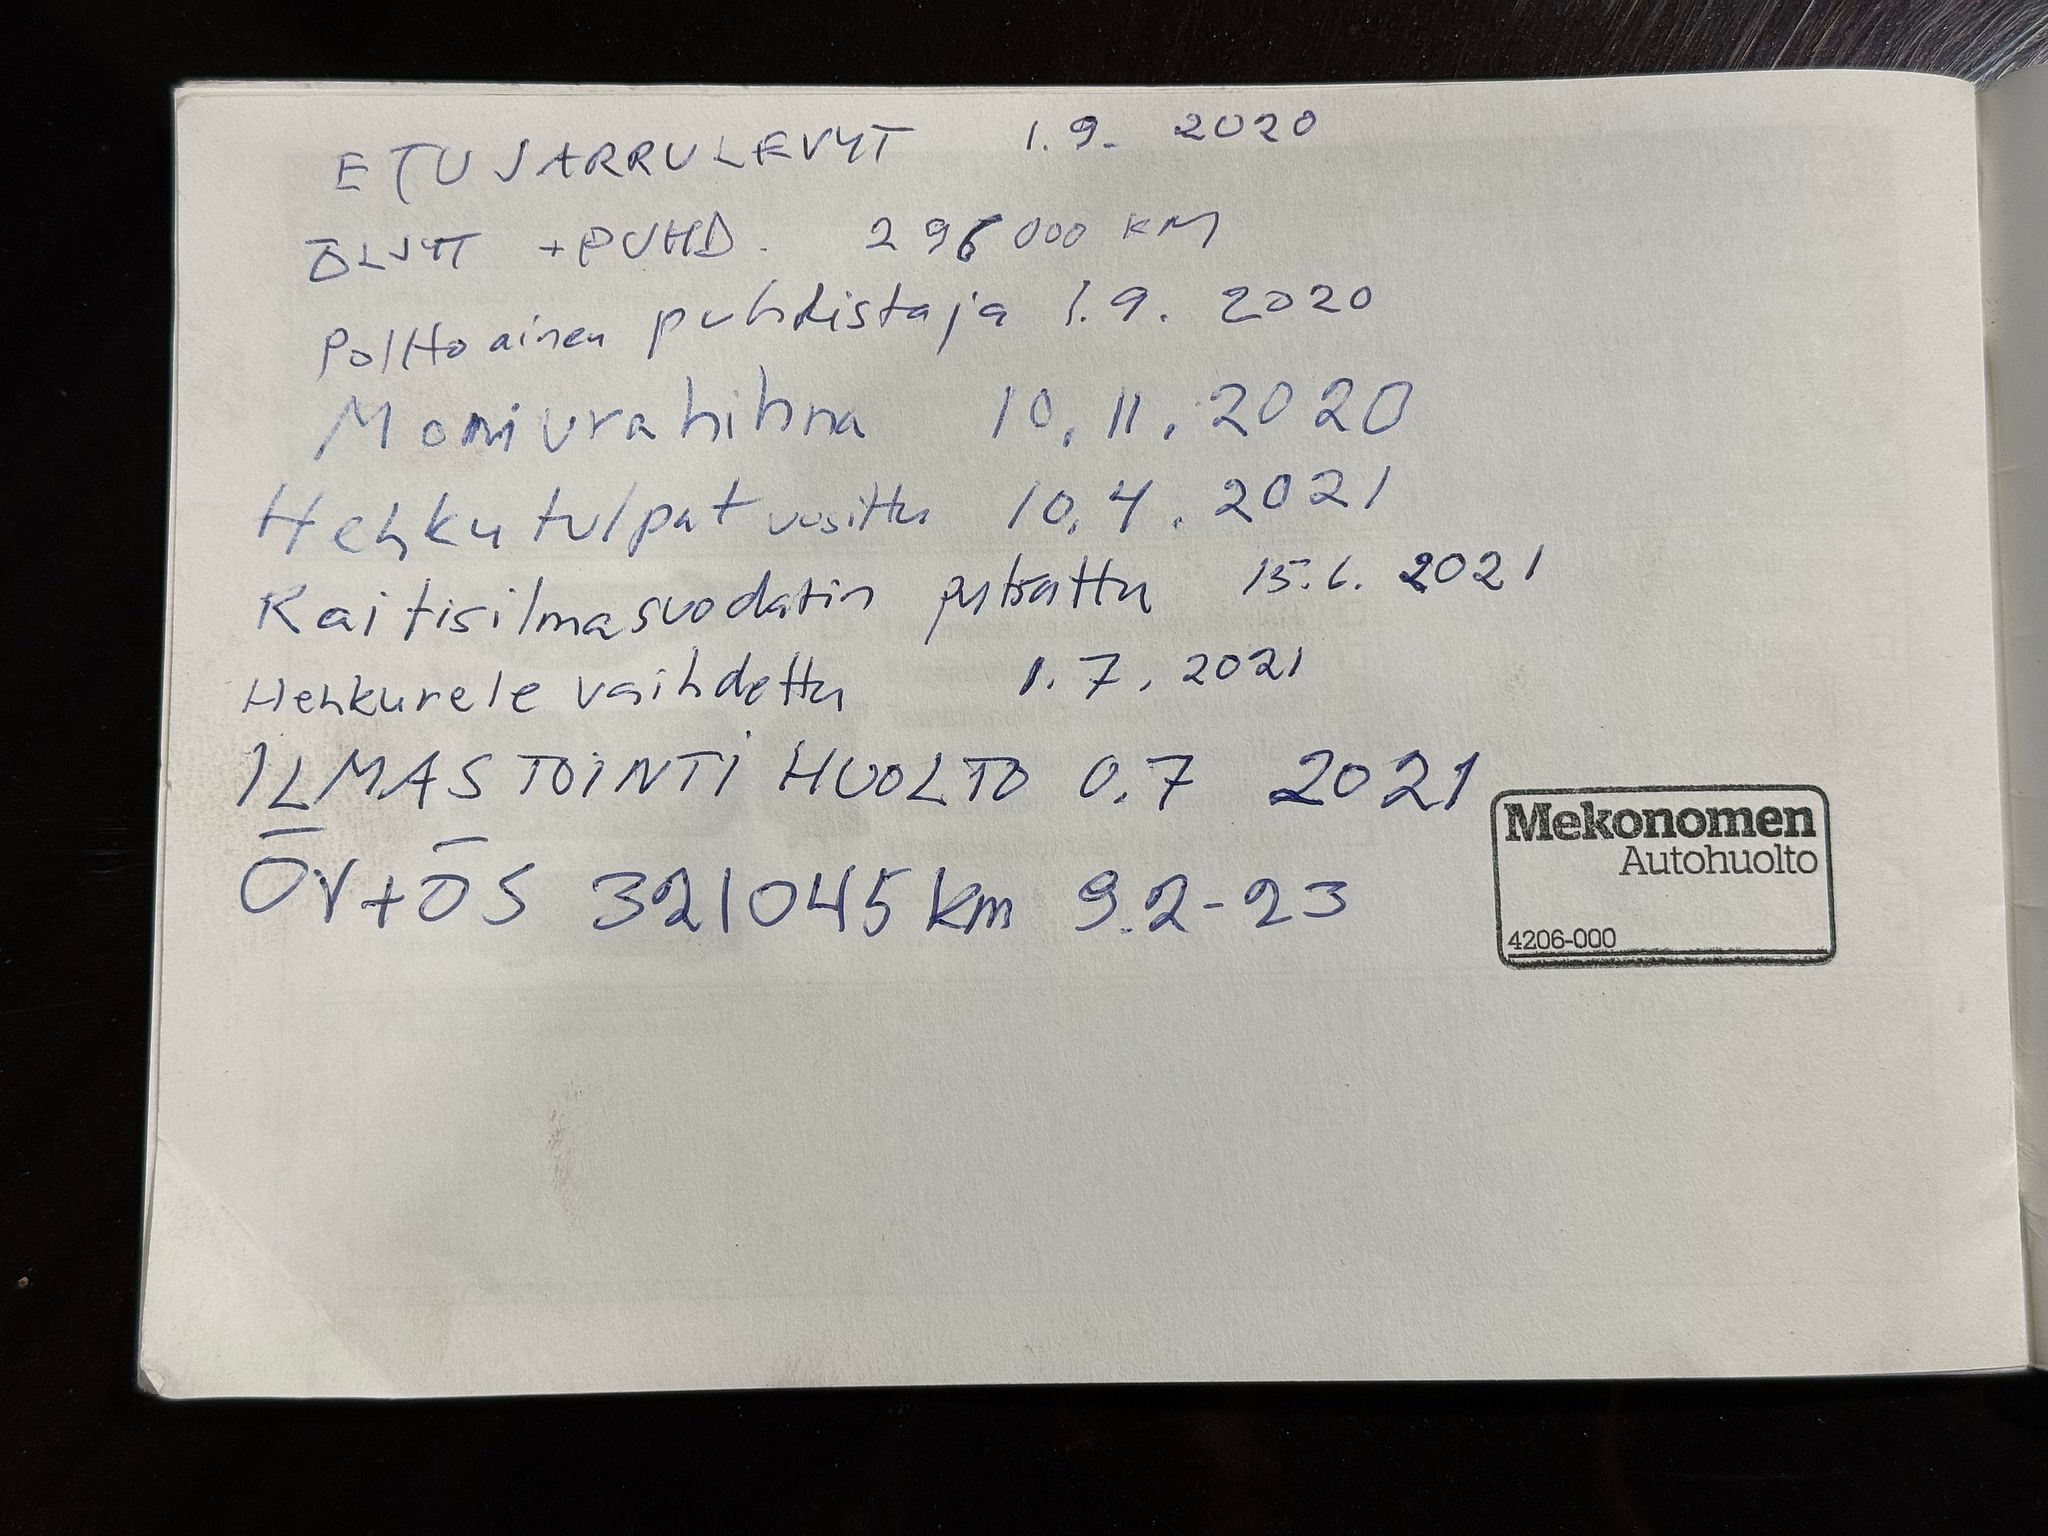 ETUJARRULEVYT 1.9. 2020
ÖLJYT +PUHD. 296000 KM
Polttoainen puhdistaja 1.9. 2020
Moniurahihna 10.11.2020
Hehkutulpat uusittu 10.4.2021
Raitisilmasuodatin 15.6. 2021
Hehkurele vaihdettu 1.7.2021
ILMASTOINTI HUOLTO 0.7 2021
ÖV+ÖS 321045km 9.2-23
Mekonomen
Autohuolto
4206-000